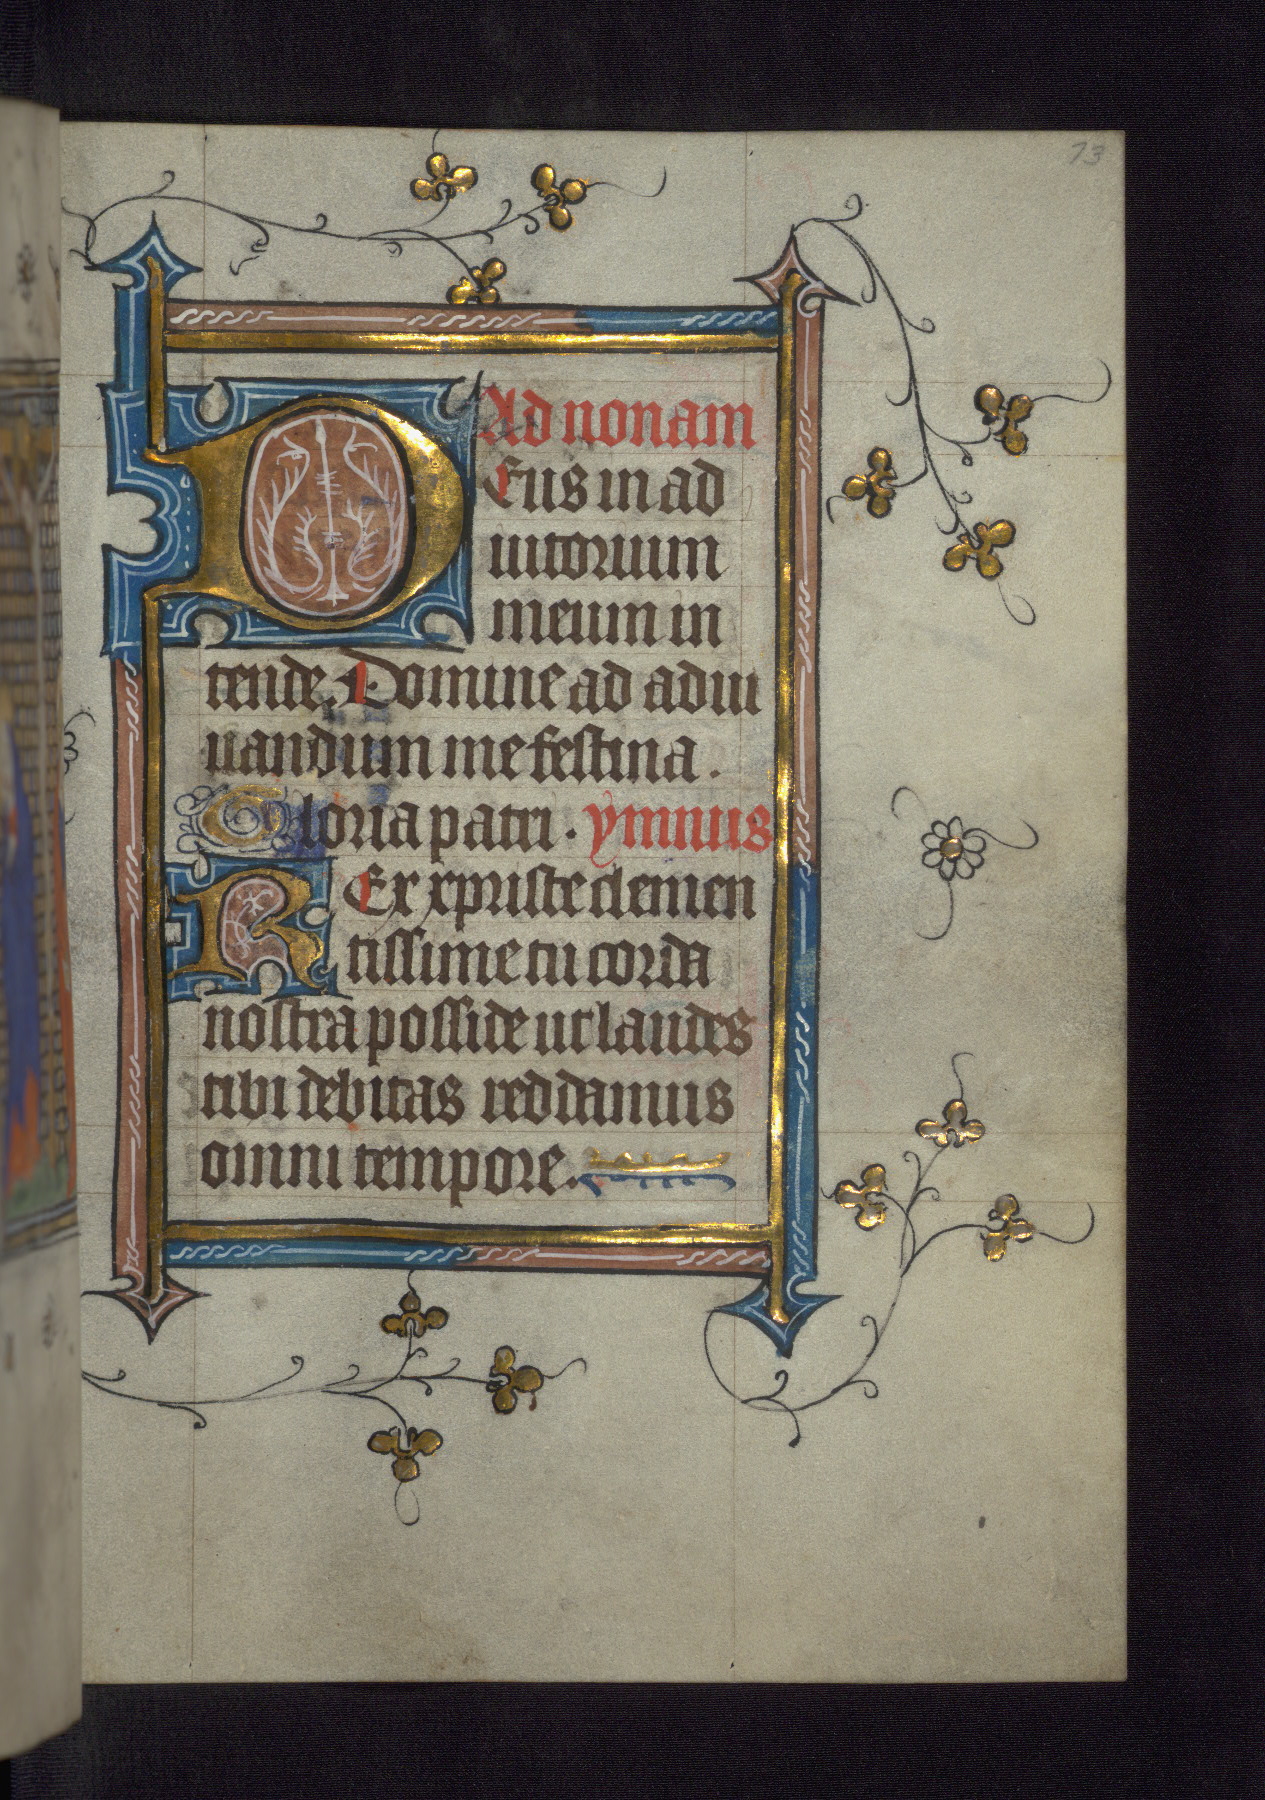 73
Ad nonam
Deus in ad
iutorium
meum in
tende. Domine ad adiu
uandum me festina.
Gloria patri. ymnus
Rex xpriste clemen
tissime tu corda
nostra posside ut laudes
tibi debitas reddamus
omni tempore.